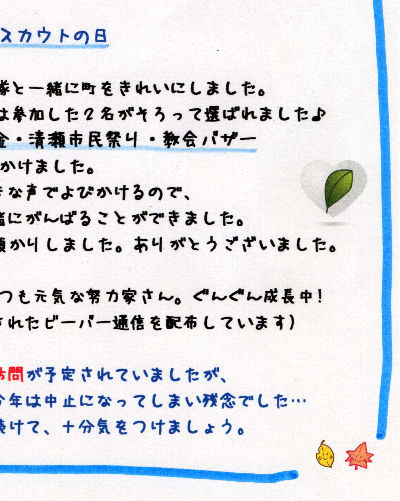 スカウトの日
隊と一緒に町をきれいにしました。
は参加した2名がそろって選ばれました♪
金・清瀬市民祭り・教会バザー
かけました。
きな声でよびかけるので、
緒にがんばることができました。
預かりしました。ありがとうございました。
つも元気な努力家さん。ぐんぐん成長中!
されたビーバー通信を配布しています)
訪問が予定されていましたが、
今年は中止になってしまい残念でした…
続けて、十分気をつけましょう。